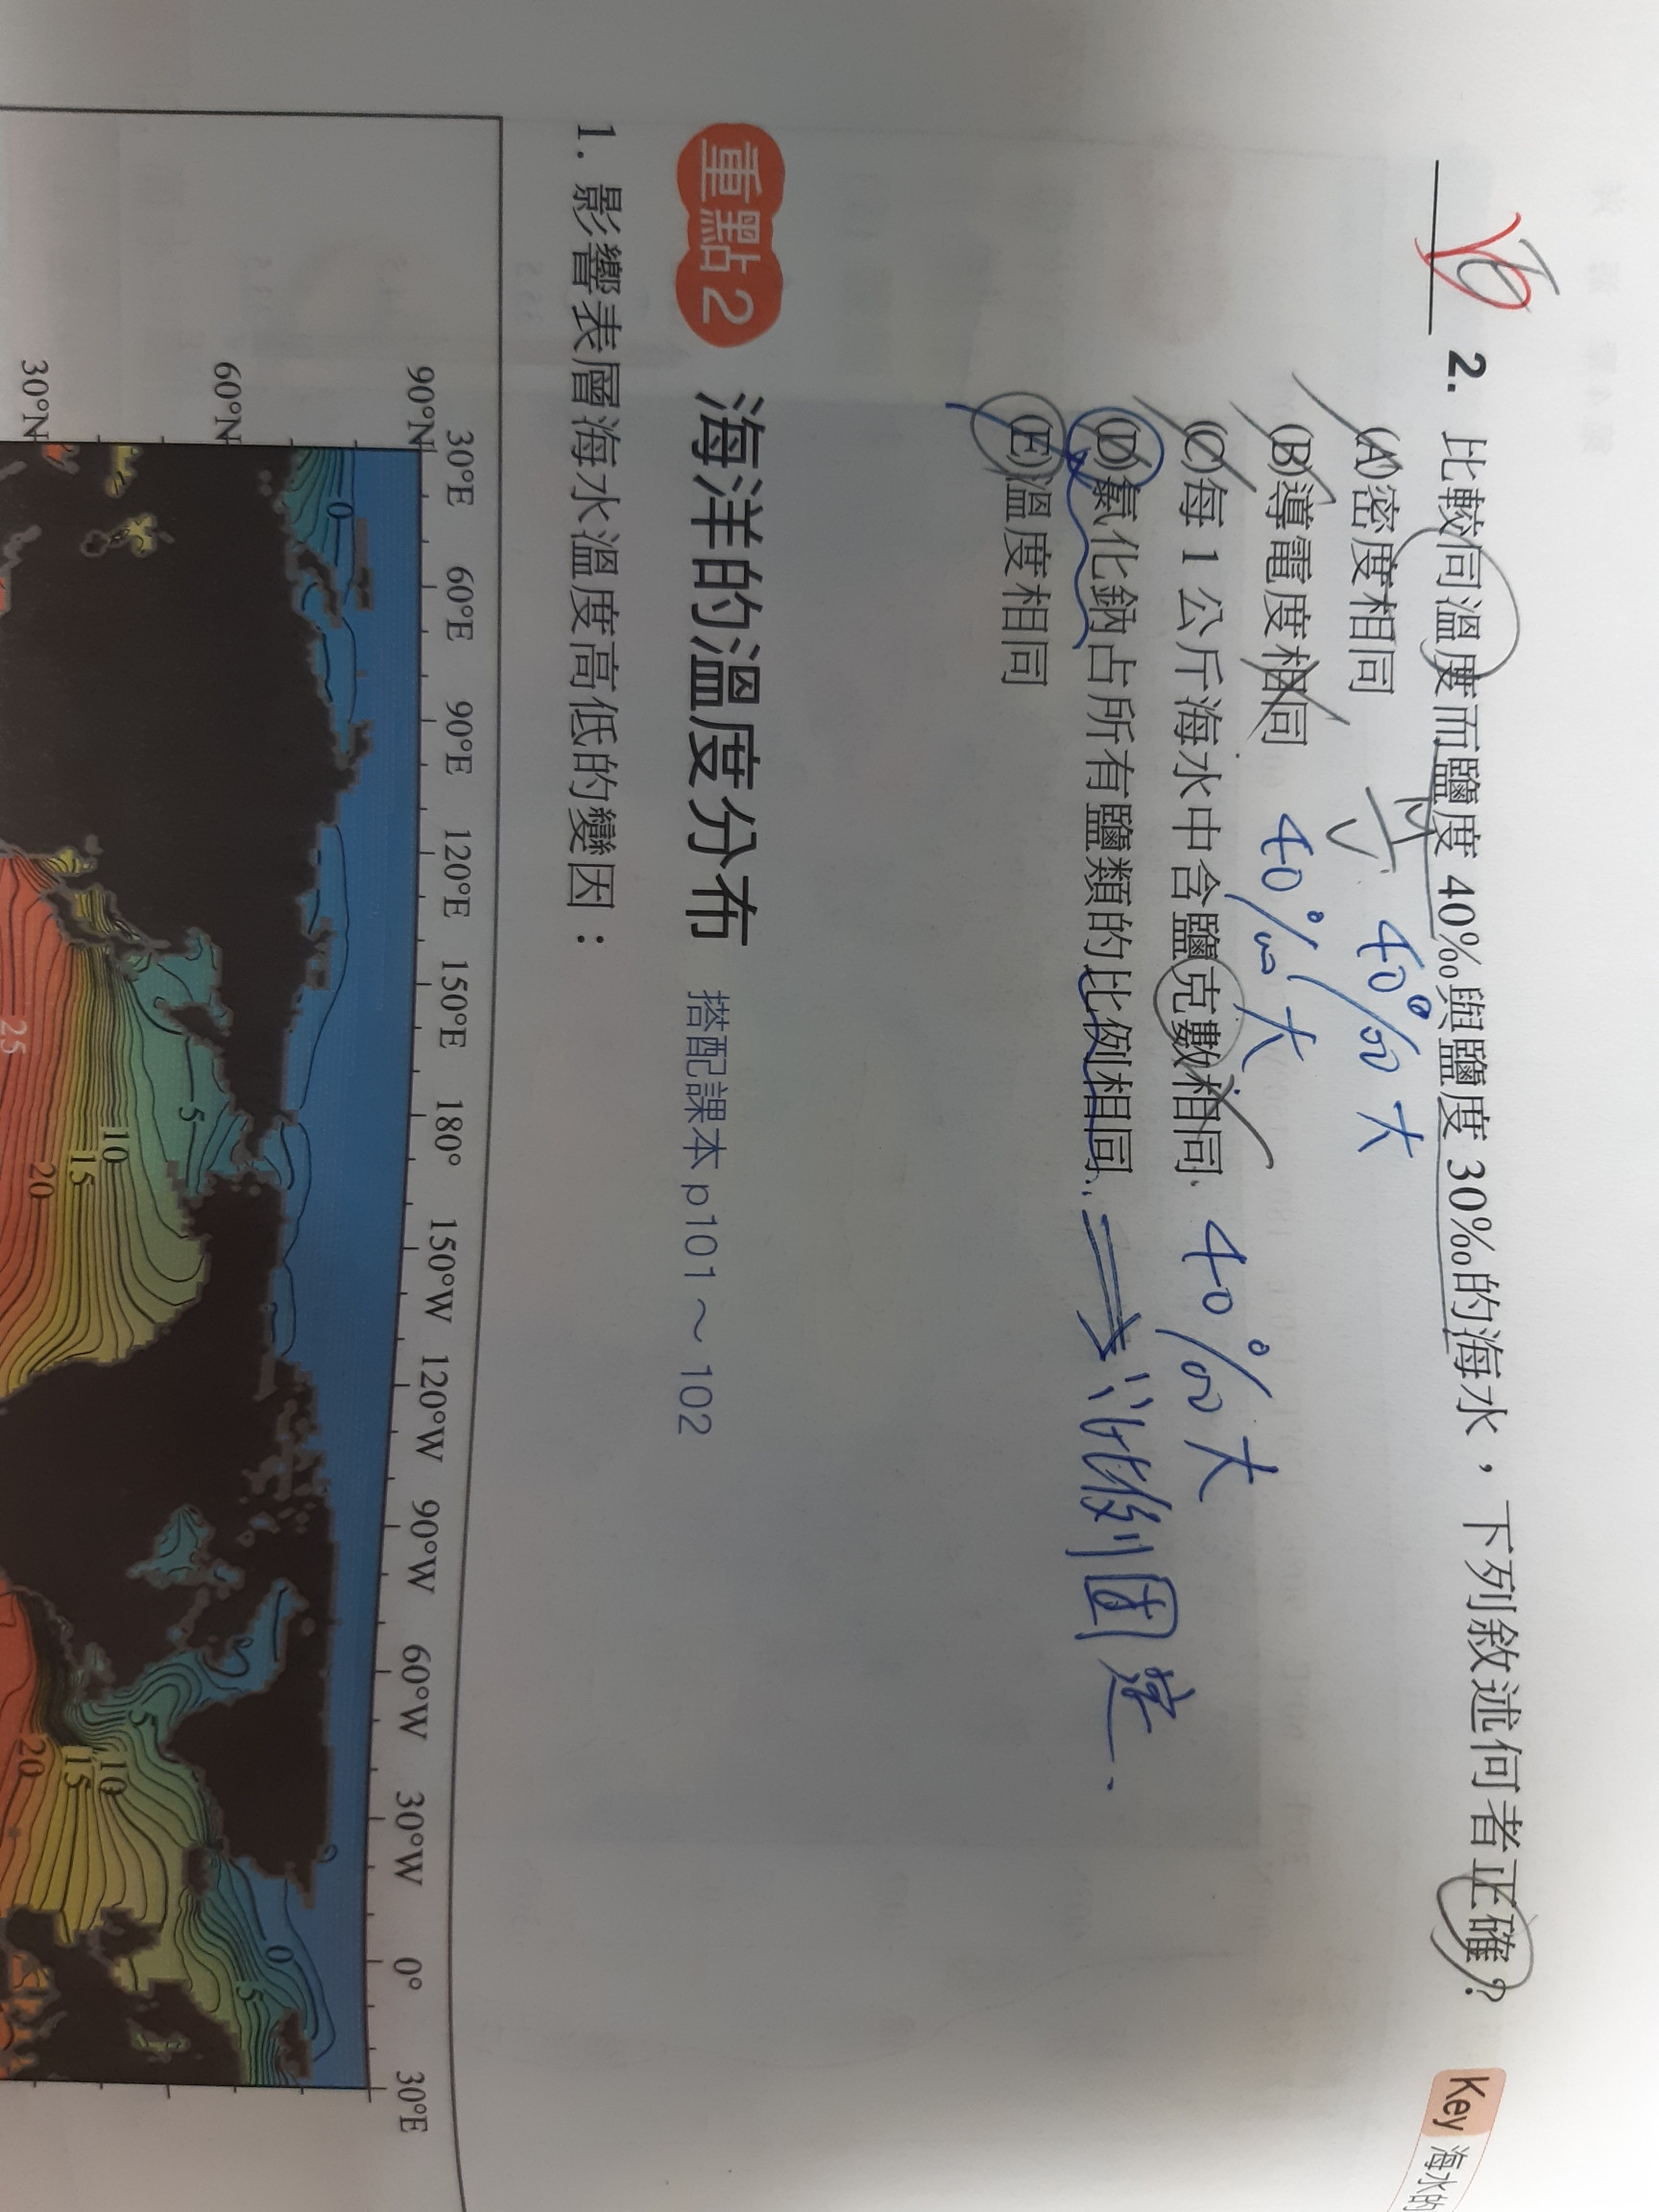 2. 比較同溫度而鹽度 40‰與鹽度 30‰的海水，下列敘述何者正確？
Key 海水的
(A)密度相同 40‰大
(B)導電度相同 40‰大
(C)每 1 公斤海水中含鹽克數相同 40‰大
(D)氯化鈉占所有鹽類的比例相同 ⇒ 比例固定
(E)溫度相同
重點2 海洋的溫度分布 搭配課本 p101～102
1. 影響表層海水溫度高低的變因：
30°E 60°E 90°E 120°E 150°E 180° 150°W 120°W 90°W 60°W 30°W 0° 30°E
90°N
0
0
60°N
5
5
5
10
15
20
25
10
15
20
30°N